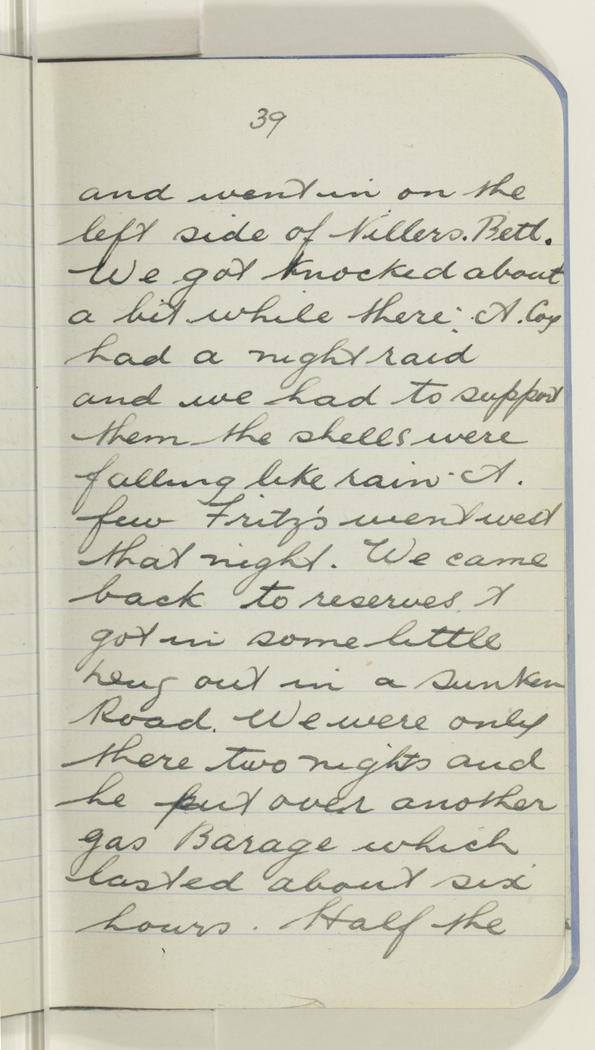 39
and went in on the
left side of Villers. Bett.
We got knocked about
a bit while there. A. Coy
had a night raid
and we had to support
them the shells were
falling like rain. A.
few Fritz's went west
that night. We came
back to reserves &
got in some little
hung out in a sunken
Road. We were only
there two nights and
he put over another
gas Barage which
lasted about six
hours. Half the